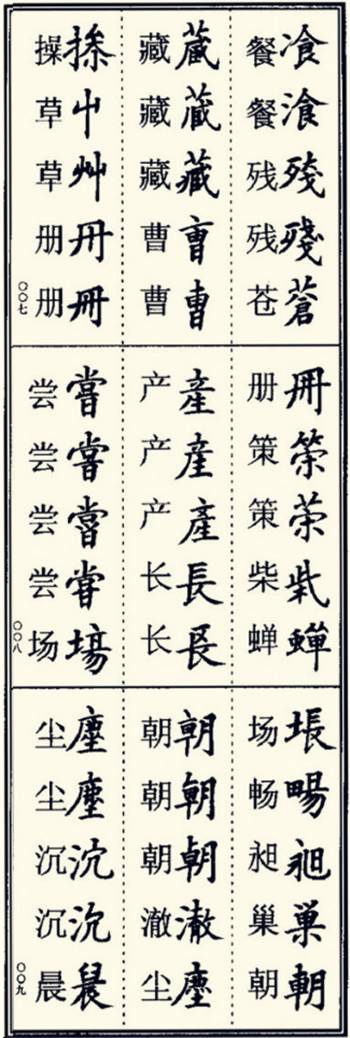 飡湌殘殘蒼
餐餐残残苍
藏藏藏曺曹
藏藏藏曹曹
屮艸冊冊
操草草册册
〇〇七
冊筞柴蟬
册策策柴蝉
產產產長長
产产产长长
嘗嘗嘗嘗塲
尝尝尝尝场
〇〇八
暢昶巢朝
场畅昶巢朝
朝朝朝澈塵
朝朝朝澈尘
塵塵沉沉晨
尘尘沉沉晨
〇〇九